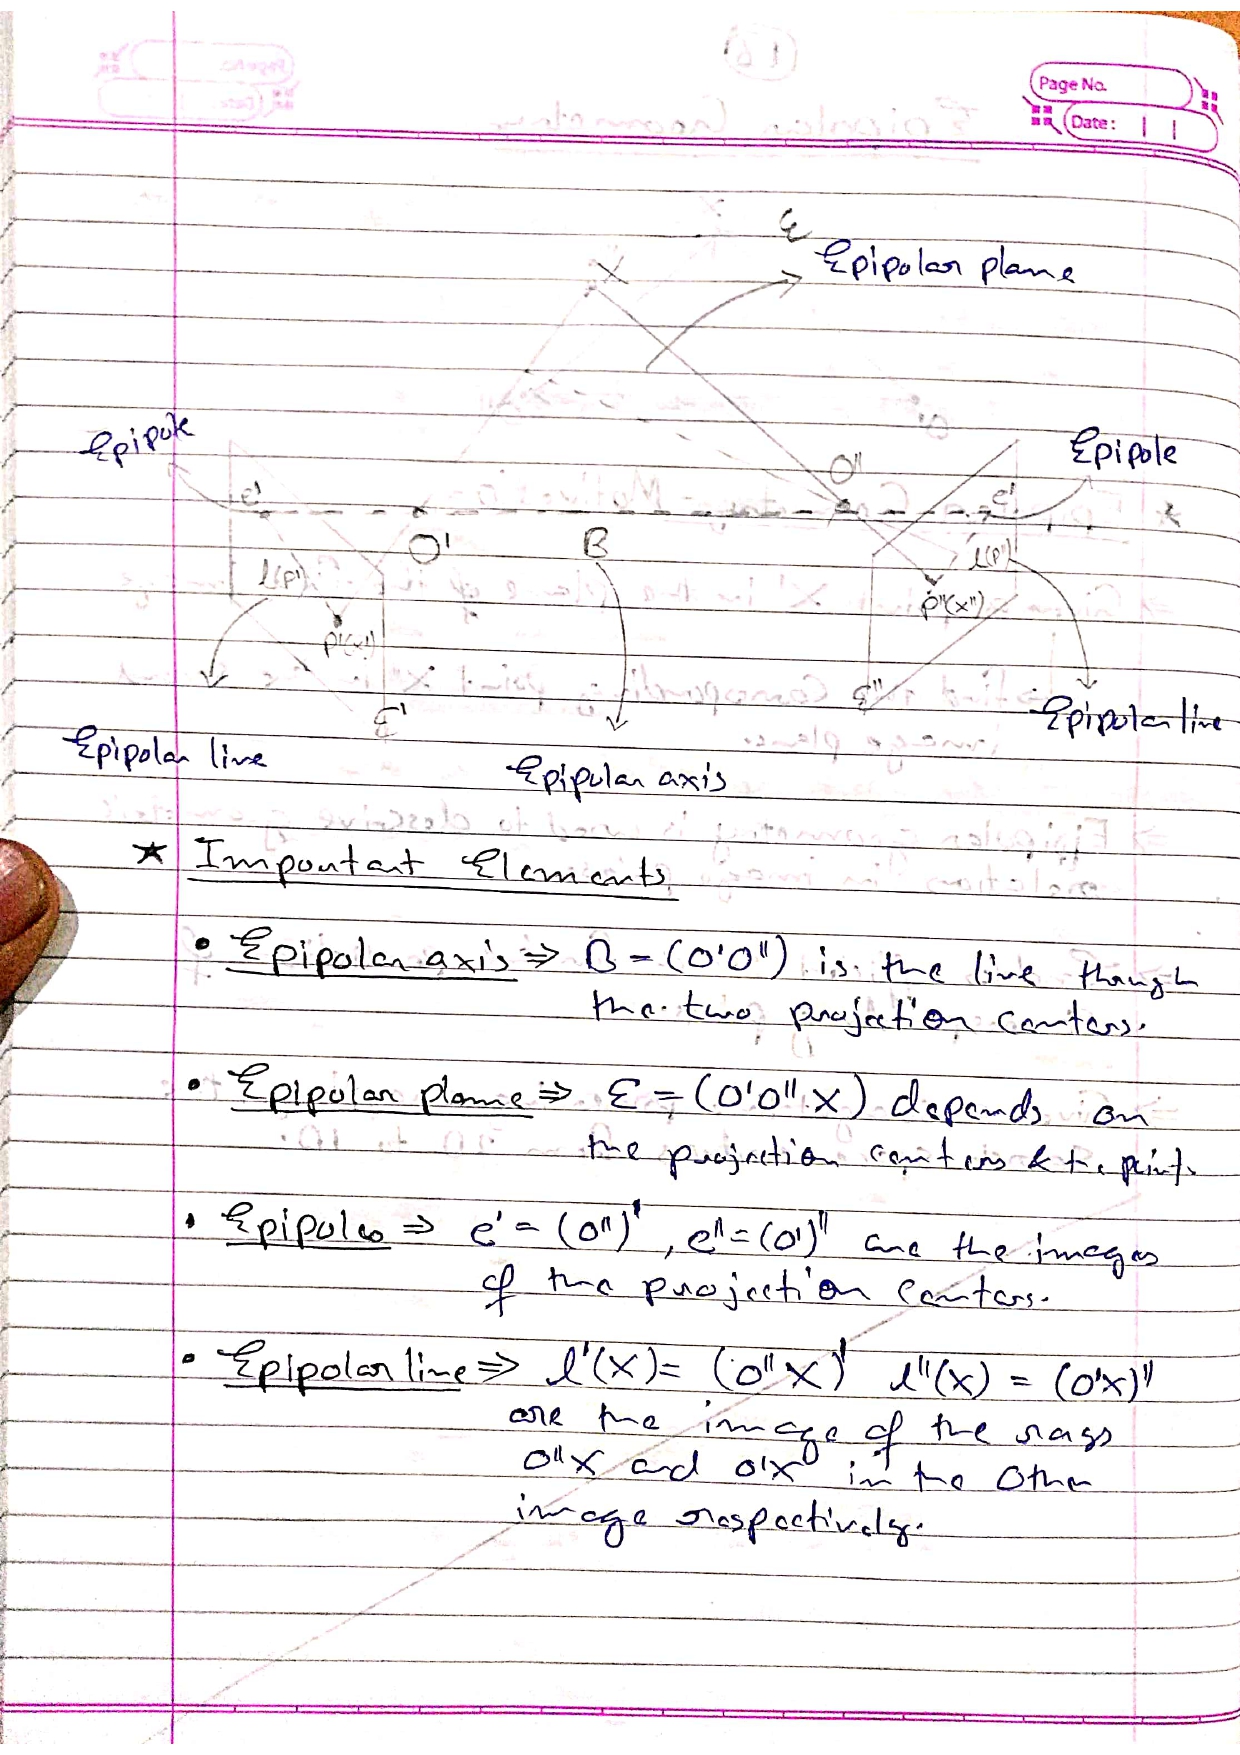 Page No.
Date:
ε
Epipolar plane
X
Epipole
Epipole
O''
e'
e'
O'
B
l(P')
l(P')
P'(x')
P''(x'')
ε'
ε''
Epipolar line
Epipolar line
Epipolar axis
★ Important Elements
• Epipolar axis ⇒ B = (O'O'') is the line though
the two projection centers.
• Epipolar plane ⇒ ε = (O'O''X) depends on
the projection centers & the point.
• Epipoles ⇒ e' = (O'')', e'' = (O')'' are the images
of the projection centers.
• Epipolar line ⇒ l'(X) = (O''X)' l''(X) = (O'X)''
are the image of the rays
O''X and O'X in the other
image respectively.